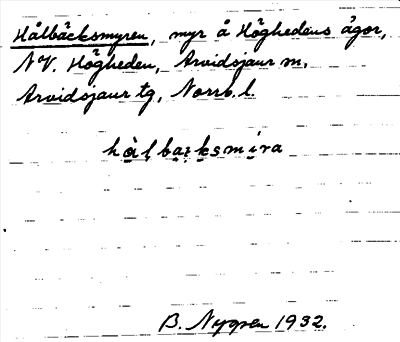 Hålbäcksmyren, myr å Höghedens ägor,
NV. Högheden, Arvidsjaur m.
Arvidsjaur tg, Norrb. l.
hålbaksmira
B. Nygren 1932.